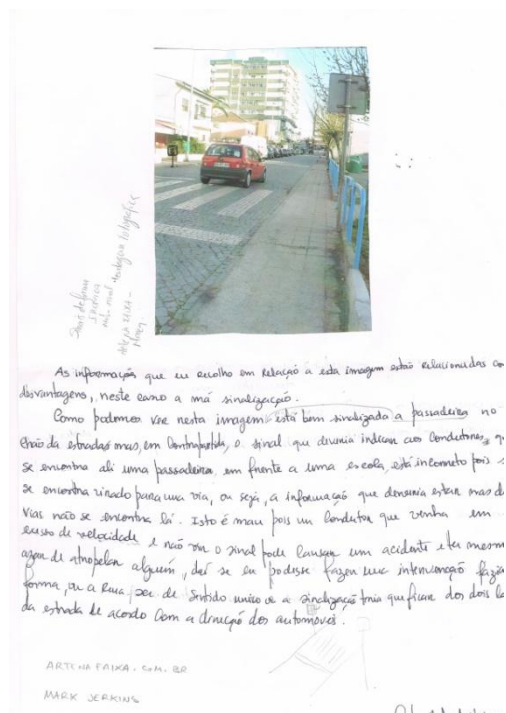 As informação que eu recolho em Relação a esta imagem estão relacionadas co
desvantagens, neste caso a má sinalização.
Como podemos ver nesta imagem está bem sinalizada a passadeira no
chão da estradas mas, em contrapartida, o sinal que deveria indicar aos condutores, q
se encontra ali uma passadeira em frente a uma escola, está incorreto pois
se encontra virado para uma via, ou seja, a informação que deveria estar nas d
vias não se encontra lá. Isto é mau pois um condutor que venha em
excesso de velocidade e não vir o sinal pode causar um acidente e ter mesm
azar de atropelar alguém, daí se eu podesse fazer uma intervenção fazia
forma, ou a Rua ser de sentido unico ou a sinalização teria que ficar dos dois la
da estrada de acordo com a direcção dos automoveis.
ARTE NA FAIXA. COM. BR
MARK JENKINS